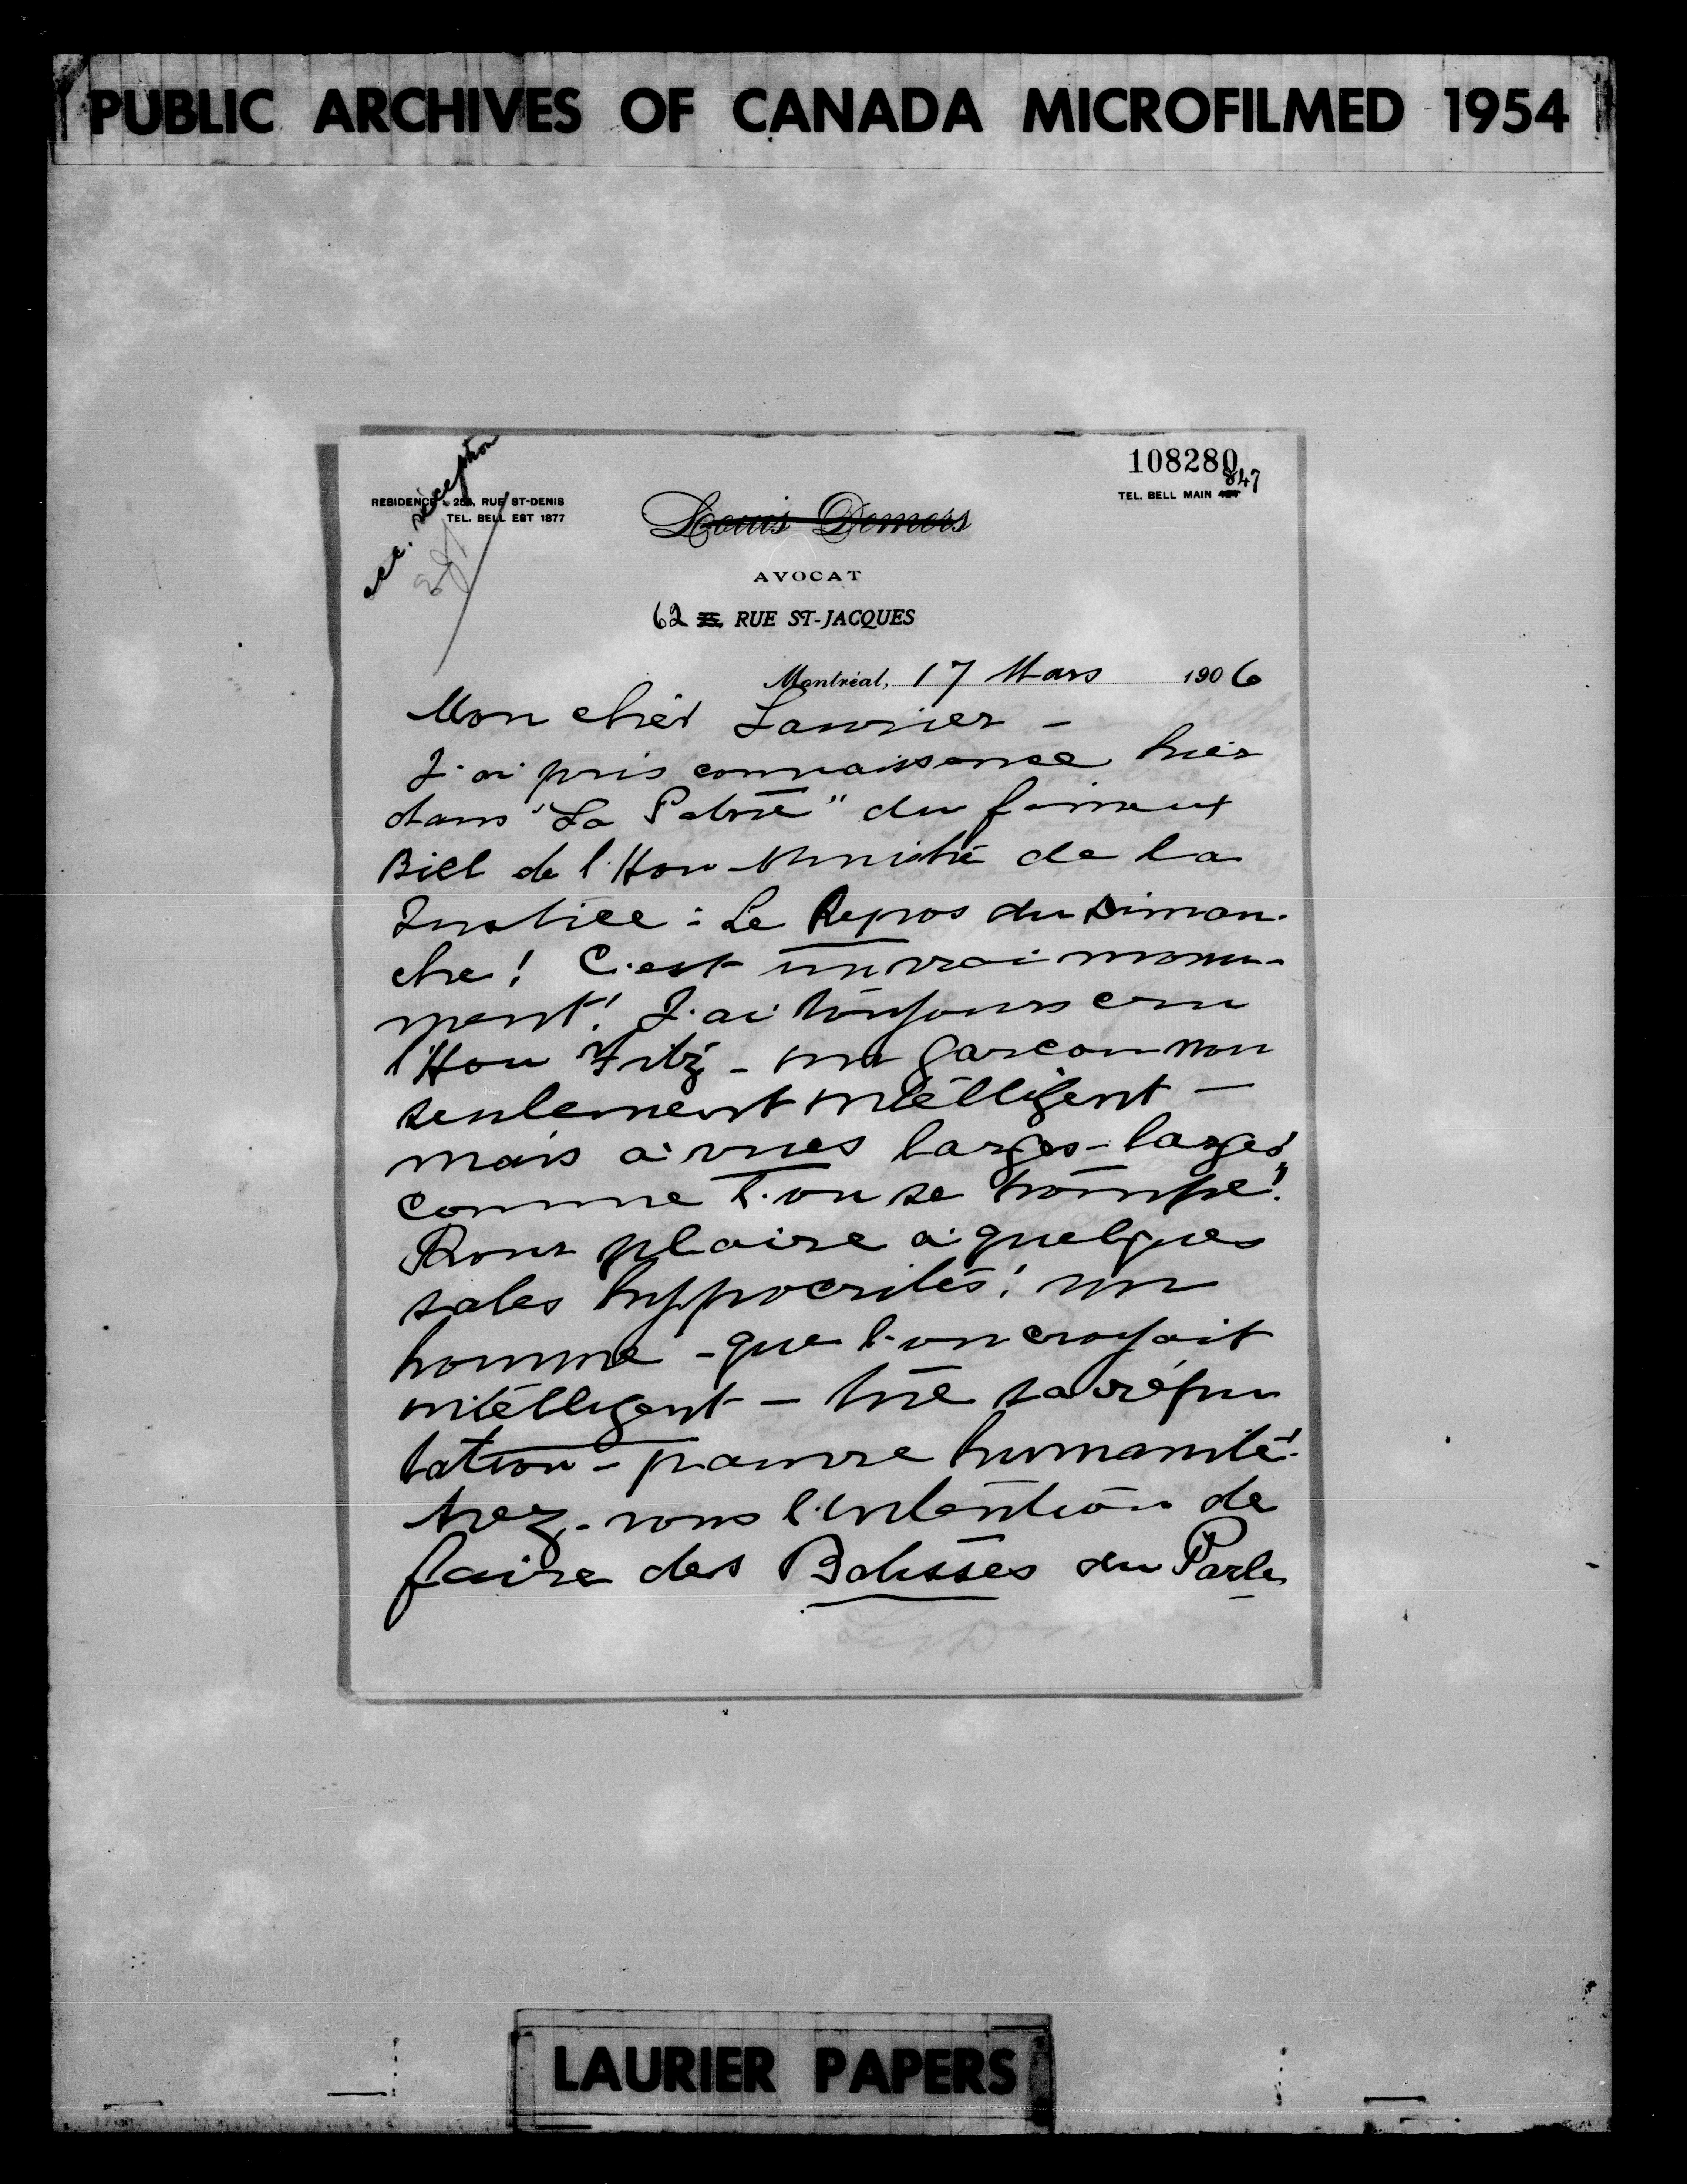 PUBLIC ARCHIVES OF CANADA MICROFILMED 1954
108280
acc. réception
RESIDENCE, RUE ST-DENIS
TEL. BELL EST 1877
Louis Demers
TEL. BELL MAIN 847
AVOCAT
62 RUE ST-JACQUES
Montréal, 17 Mars 1906
Mon cher Laurier -
J'ai pris connaissance hier
dans "La Patrie" du fameux
Bill de l'Hon Ministre de la
Justice : Le Repos du Diman-
che ! C'est un vrai monu-
ment ! J'ai toujours cru
l'Hon Fitz - un garcon non
seulement intelligent -
mais à vues larges - larges
comme l'on se trompe !
Pour plaire à quelques
sales hyppocrites ! un
homme - que l'on croyait
intelligent - tue sa répu
tation - pauvre humanité !
Avez-vous l'intention de
faire des Batisses du Parle
LAURIER PAPERS